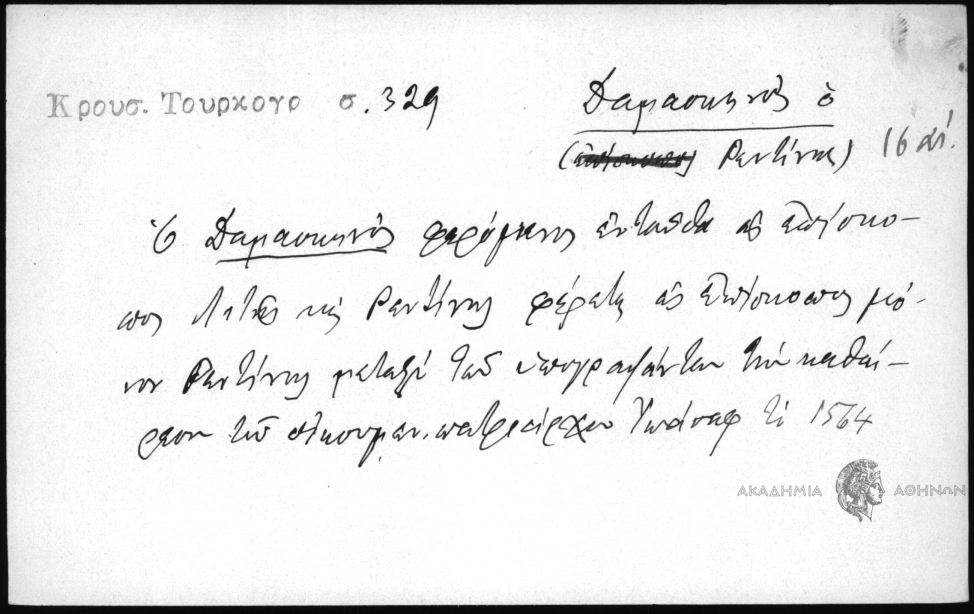 Κρουσ. Τουρκογρ σ. 329
Δαμασκηνός ὁ
(ἐπίσκοπος) Ρεντίνης) 16 αἰ.
Ὁ Δαμασκηνός φερόμενος ἐνταῦθα ὡς ἐπίσκο-
πος Λιτῆς καὶ Ρεντίνης φέρεται ὡς ἐπίσκοπος μό-
νον Ρεντίνης μεταξὺ τῶν ὑπογραψάντων τὴν καθαί-
ρεσιν τοῦ οἰκουμεν. πατριάρχου Ἰωάσαφ τῷ 1564
ΑΚΑΔΗΜΙΑ ΑΘΗΝΩΝ